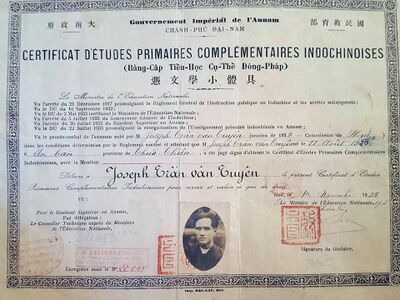 府政南大
Gouvernement Impérial de l'Annam
部育教民國
CHÁNH-PHỦ ĐẠI-NAM
CERTIFICAT D'ÉTUDES PRIMAIRES COMPLÉMENTAIRES INDOCHINOISES
(Bằng-Cấp Tiểu-Học Cụ-Thể Đông-Pháp)
憑文學小體具
Le Ministre de l'Education Nationale
Vu l'arrêté du 21 Décembre 1917 promulguant le Règlement Général de l'Instruction publique en Indochine et les arrêtés subséquents;
Vu le DU du 10 Septembre 1932;
Vu le DU du 2 Mai 1933 constituant le Ministère de l'Education Nationale;
Vu l'arrêté du 21 Juillet 1933 du Gouverneur Général de l'Indochine;
Vu le DU du 23 Juillet 1933 du Gouvernement Annamite;
réorganisation de l'Enseignement primaire indochinois en Annam;
Vu le procès-verbal de l'examen subi par M. Joseph Trần văn Tuyên en 1939
conditions déterminées par le Règlement susvisé et attestant que Joseph Trần văn Tuyên
a été jugé digne d'obtenir le Certificat d'Etudes Primaires Complémentaires
Indochinoises, avec la Mention
Délivre à Joseph Trần văn Tuyên le présent Certificat d'Etudes
Primaires Complémentaires Indochinoises pour servir et valoir ce que de droit.
1939
Pour le Résident Supérieur en Annam,
Par délégation:
Le Conseiller Technique auprès du Ministère
de l'Education Nationale,
Le Ministre de l'Education Nationale,
Signature du titulaire,
Enregistré sous le No